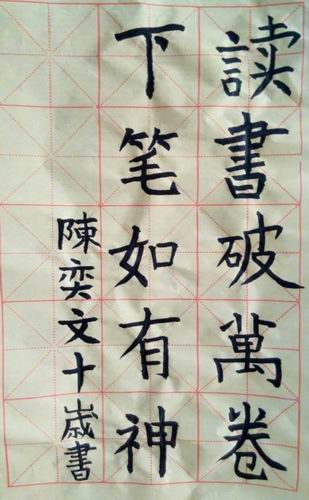 读書破萬卷
下笔如有神
陳奕文十歲書